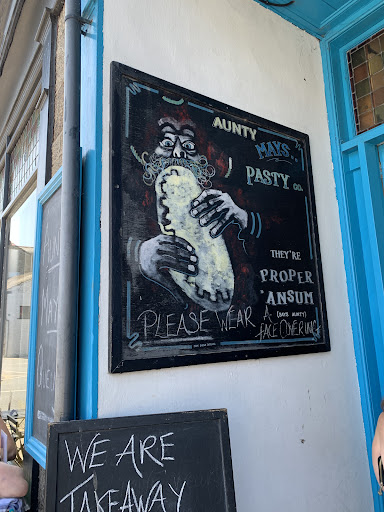 AUNTY
MAYS..
PASTY CO.
THEY'RE
PROPER
'ANSUM
(SAYS AUNTY)
PLEASE WEAR A
FACE COVERING
WE ARE
TAKEAWAY